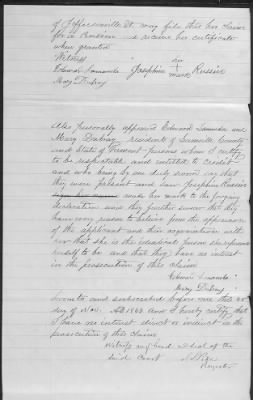 of Jeffersonville Vt. may file this her claim
for a Pension & receive her certificate
when granted
Witness her
Edward Lamonda Josephine X Russin
Mary Dubray mark
Also personally appeared Edward Lamonda and
Mary Dubray residents of Lamoille County
and State of Vermont persons whom I certify
to be respectable and entitled to credit
and who being by me duly sworn say that
they were present and saw Josephine Russin
her mark to the foregoing
declaration and they further swear that they
have every reason to believe from the appearance
of the applicant and their acquaintance with
her that she is the identical person she represents
herself to be and that they have no interest
in the prosecution of this claim
Edward Lamonda
Mary Dubray
Sworn to and subscribed before me this
day of Nov. AD 1888 and I hereby certify that
I have no interest direct or indirect in the
prosecution of this claim
Witness my hand & seal of the
said Court
Register